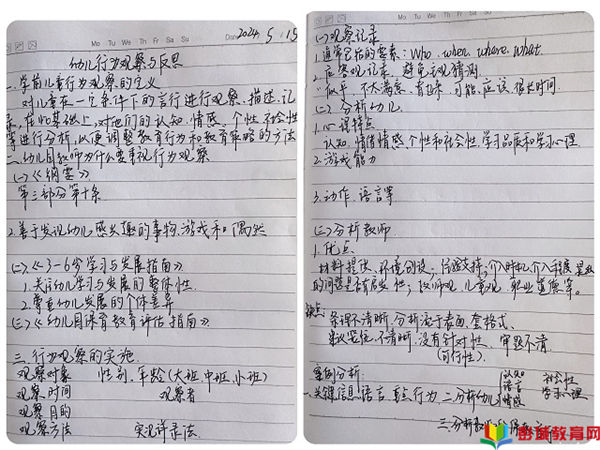 Mo Tu We Th Fr Sa Su
Date 2024. 5. 15
幼儿行为观察与反思
一. 学前儿童行为观察的定义
对儿童在一定条件下的言行进行观察、描述、记
录,在此基础上,对他们的认知、情感、个性、社会性
等进行分析,以便调整教育行为和教育策略的方法
二. 幼儿园教师为什么要重视行为观察
(一)《纲要》
第三部分第十条
2. 善于发现幼儿感兴趣的事物.游戏和偶然
(二)《3-6岁学习与发展指南》
1. 关注幼儿学习与发展的整体性
2. 尊重幼儿发展的个体差异
(三)《幼儿园保育教育评估指南》
三. 行为观察的实施
观察对象 性别、年龄(大班.中班.小班)
观察时间 观察者
观察目的
观察方法 实况详录法
Mo Tu We Th Fr Sa Su
(一)观察记录
1. 通常包括的要素: who. when. where. what
2. 应客观记录,避免主观猜测
似乎、不太满意、有趣、可能、应该、很长时间.
(二)分析幼儿
1. 心理特点
认知.情绪情感.个性和社会性.学习品质和学习心理
2. 游戏能力
3. 动作、语言等
(三)分析教师
1. 优点
材料提供、环境创设、情感支持、介入时机、介入程度、提
的问题是否有启发性、教师观、儿童观、职业道德等.
缺点:
条理不清晰,分析流于表面,套格式
不清晰,没有针对性 审题不清
(可行性)
案例分析:
一. 关键信息:语言.重点行为. 二. 分析幼儿 认知 社会性
语言 学习心理
情感
三. 分析教师
教育网